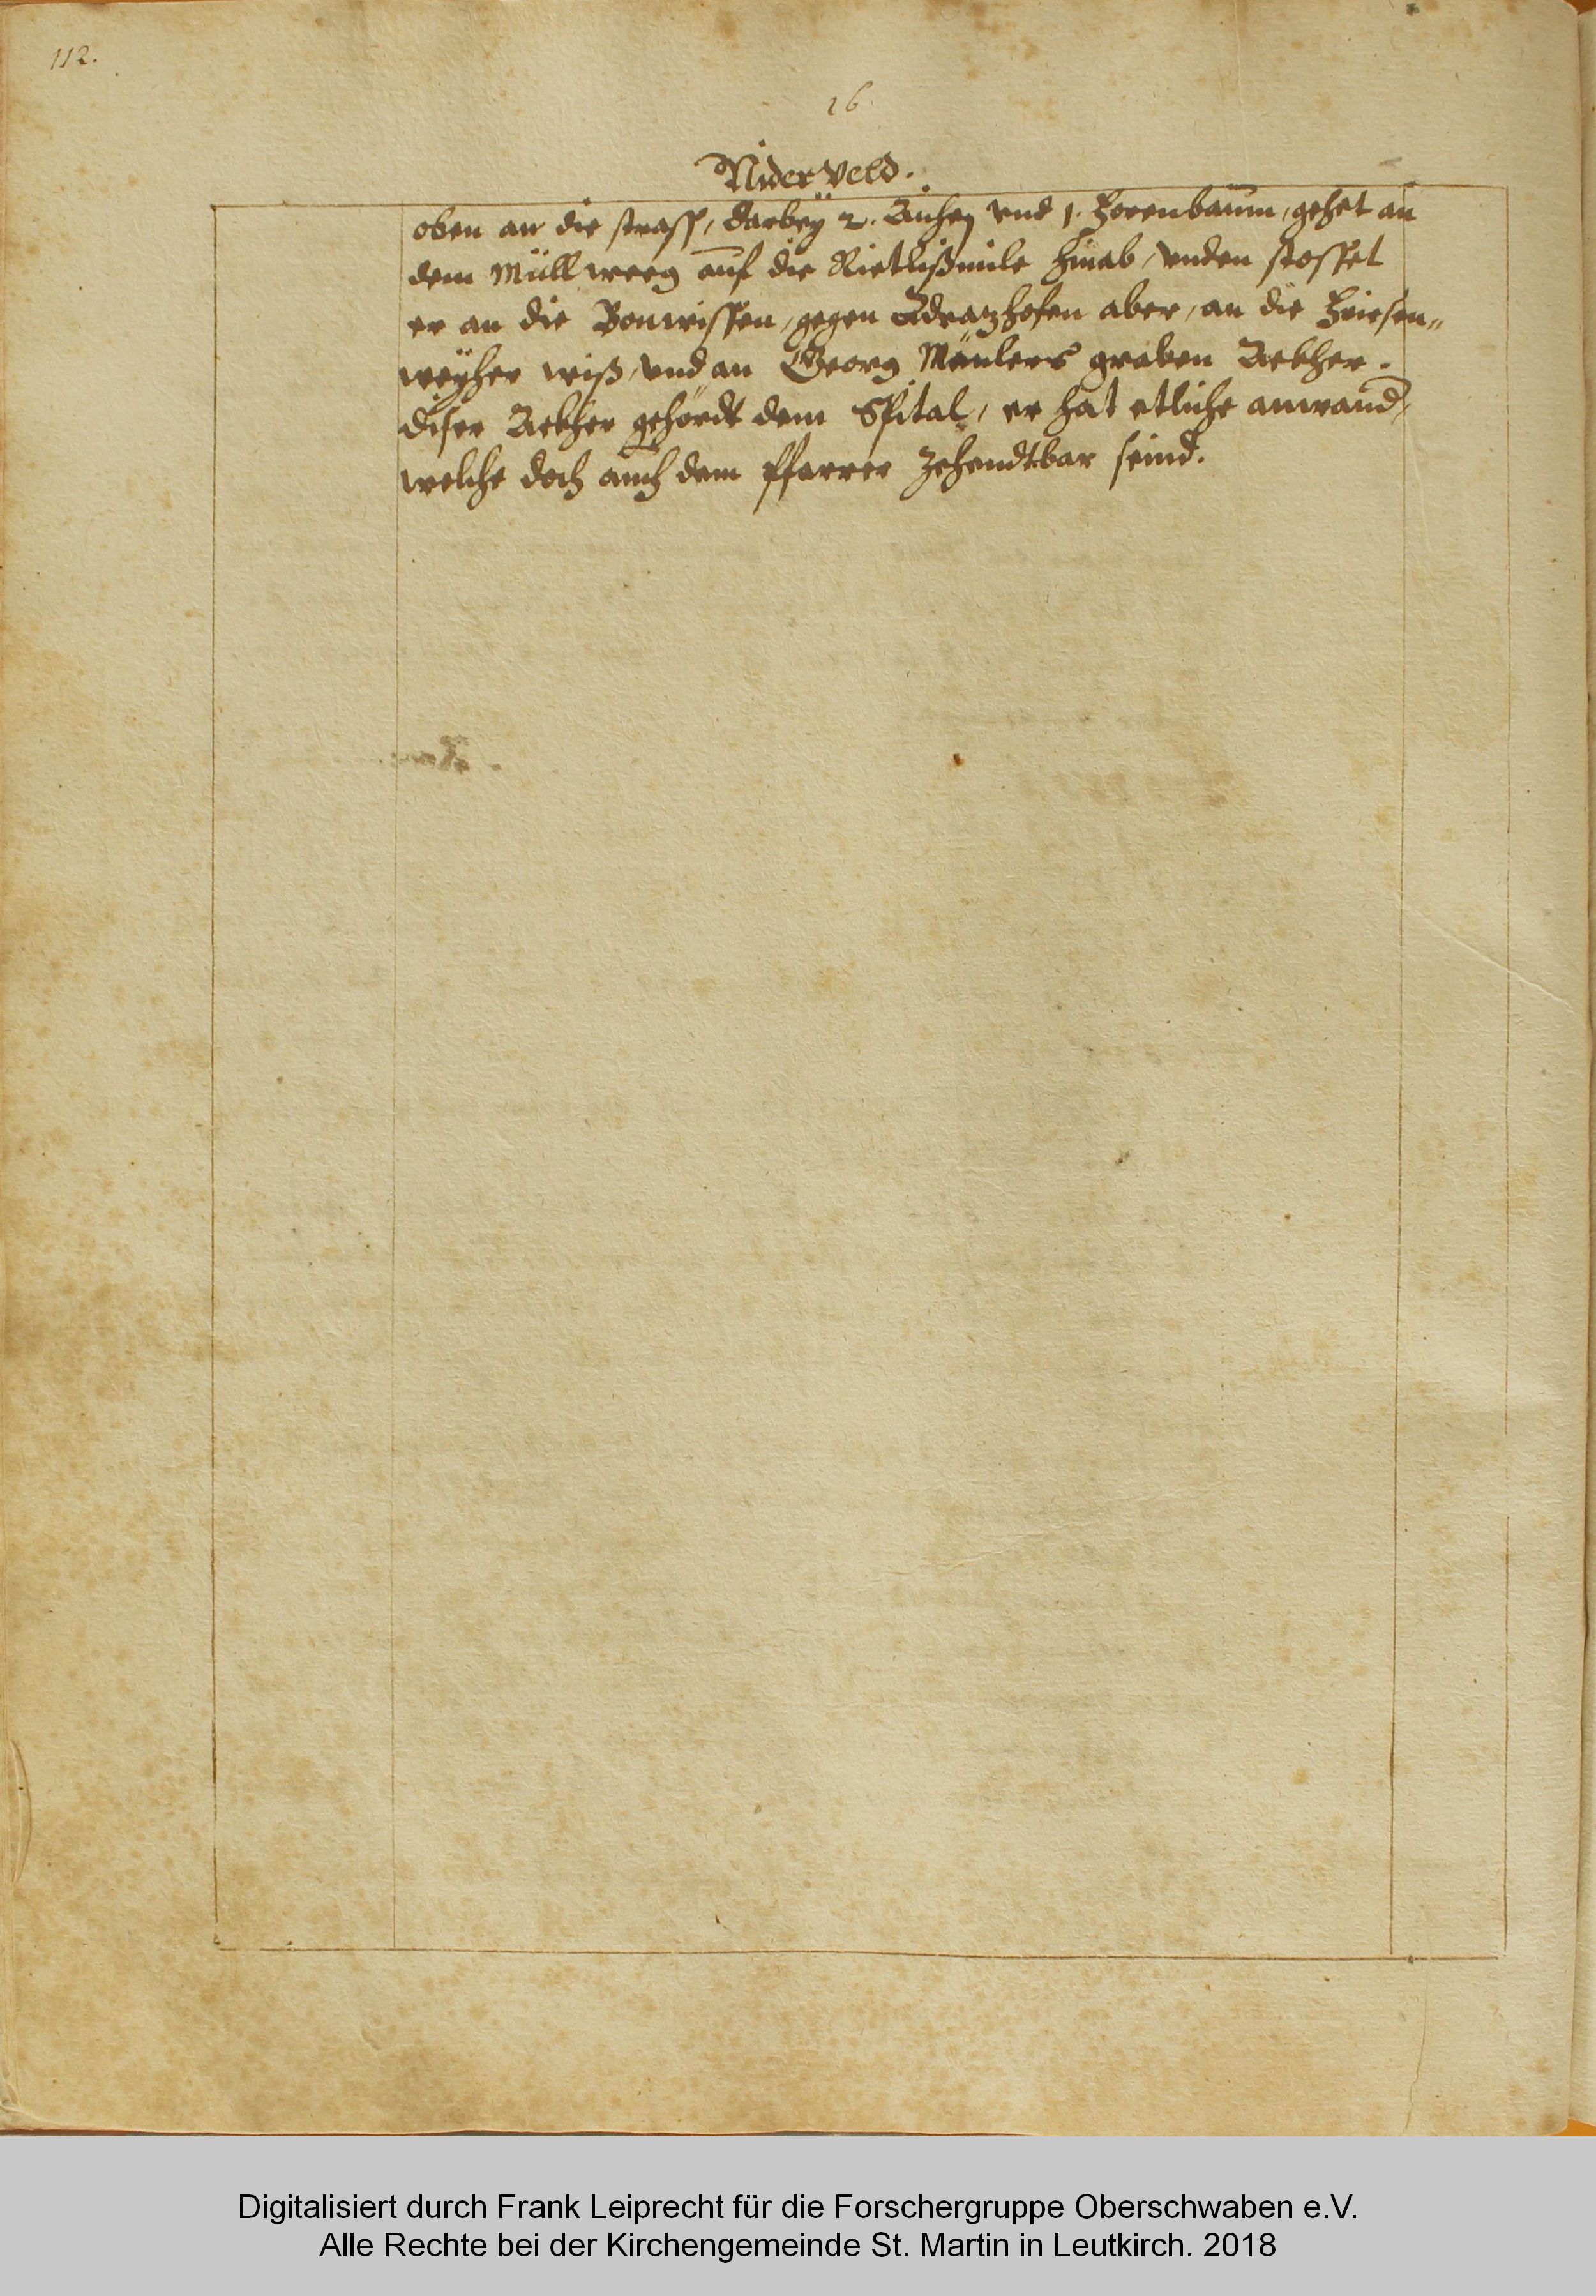 112.
26.
Nider Veld.
oben an die strass, darbeÿ 2. Aichen vnd 1. Forenbaum, gehet an
dem Müll weeg auf die Rietlißmüle hinab, vnden stosset
er an die Bonwissen, gegen Adratzhofen aber, an die
weÿher wiß, vnd an Georg graben Aekher.
diser Aekher gehördt dem Spital, er hat etliche anwand,
welche doch auch dem Pfarrer Zehendtbar seind.
Digitalisiert durch Frank Leiprecht für die Forschergruppe Oberschwaben e.V.
Alle Rechte bei der Kirchengemeinde St. Martin in Leutkirch. 2018